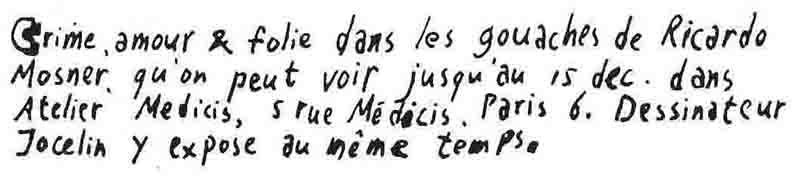 Crime, amour & folie dans les gouaches de Ricardo
Mosner, qu'on peut voir jusqu'au 15 dec. dans
Atelier Medicis, 5 rue Médicis, Paris 6. Dessinateur
Jocelin y expose au même temps.